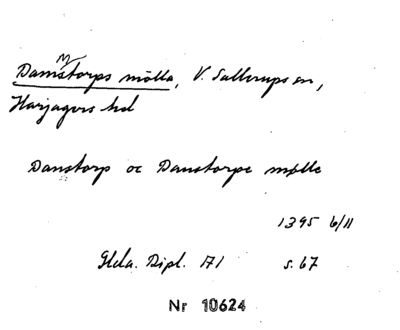 Dammstorps mölla, V. Sallerups sn,
Harjagers hd
Danstorp oc Danstorpe mølle
1395 6/11
Glda. Dipl. 171 s. 67
Nr 10624